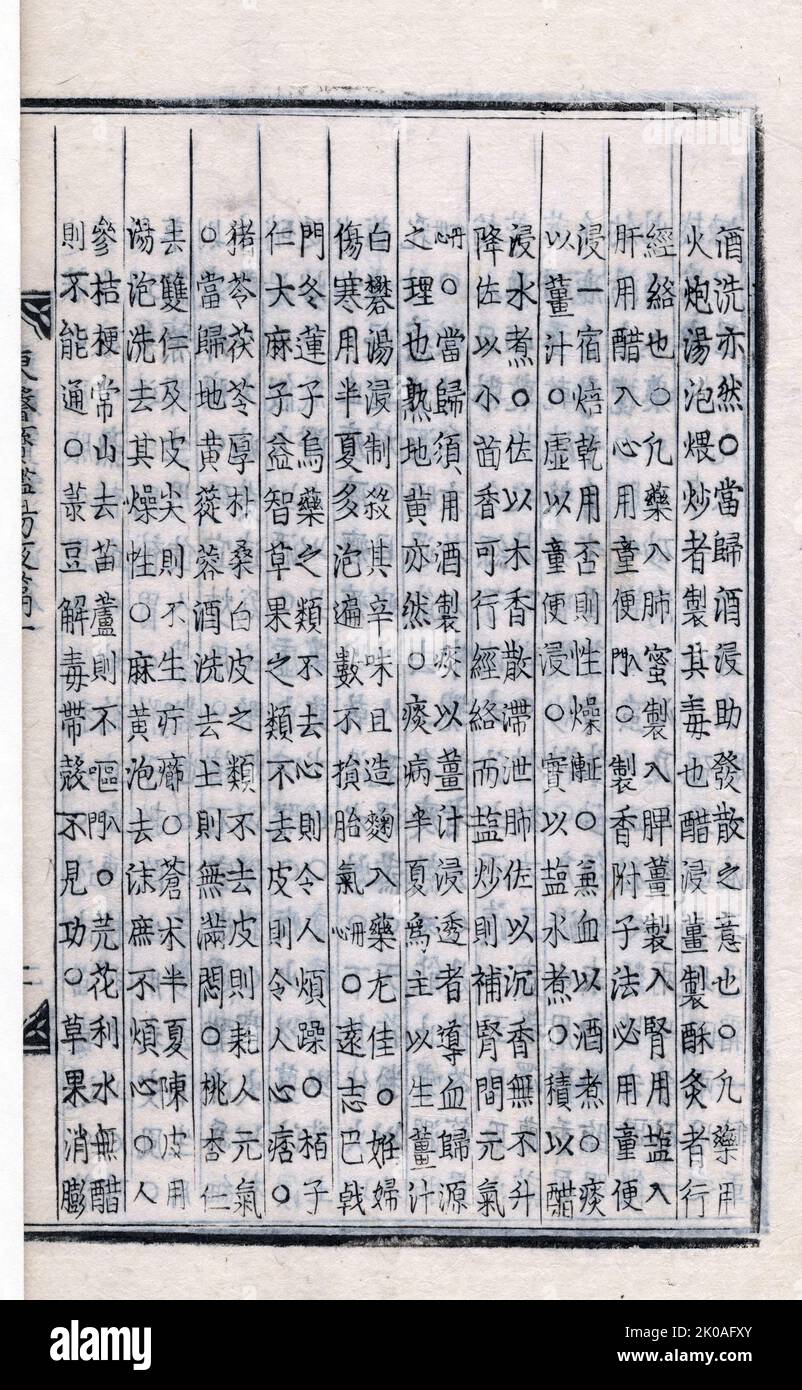 酒洗亦然○當歸酒浸助發散之意也○凡藥用
火炮湯泡煨炒者製其毒也醋浸薑製酥灸者行
經絡也○凡藥入肺蜜製入脾薑製入腎用盐入
肝用醋入心用童便入門○製香附子法必用童便
浸一宿焙乾用否則性燥正傳○兼血以酒煮○痰
以薑汁○虛以童便浸○實以盐水煮○積以醋
浸水煮○佐以木香散滯泄肺佐以沉香無不升
降佐以小茴香可行經絡而盐炒則補腎間元氣
丹心○當歸須用酒製痰以薑汁浸透者導血歸源
之理也熟地黃亦然○痰病半夏爲主以生薑汁
白礬湯浸制殺其辛味且造麴入藥尤佳○姙婦
傷寒用半夏多泡遍數不損胎氣丹心○遠志巴戟
門冬蓮子烏藥之類不去心則令人煩躁○栢子
仁大麻子益智草果之類不去皮則令人心痞○
猪苓茯苓厚朴桑白皮之類不去皮則耗人元氣
○當歸地黃蓯蓉酒洗去土則無滿悶○桃杏仁
去雙仁及皮尖則不生疔癤○蒼朮半夏陳皮用
湯泡洗去其燥性○麻黃泡去沫庶不煩心○人
參桔梗常山去苗蘆則不嘔入門○芫花利水無醋
則不能通○菉豆解毒帶殼不見功○草果消膨
東醫寶鑑湯液篇一
二
alamy
Image ID: 2K0AFXY
www.alamy.com